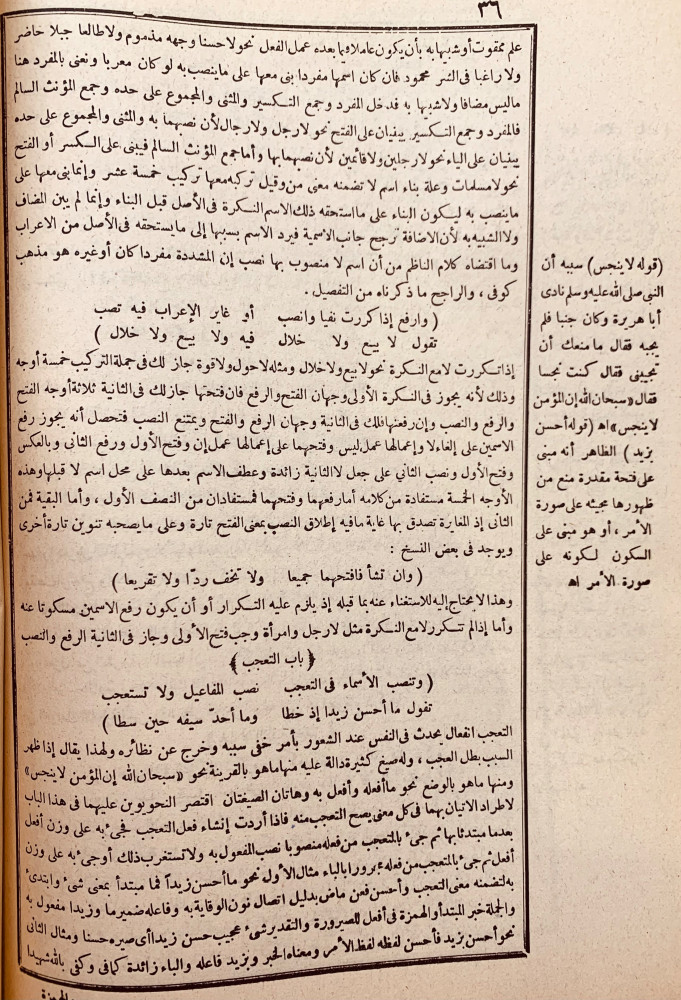 ٣٦
علم ممقوت أو شبيها به بأن يكون عاملا فيما بعده عمل الفعل نحو لا حسنا وجهه مذموم ولا طالعا جبلا حاضر
ولا راغبا فى الشر محمود فان كان اسمها مفردا بنى معها على ما ينصب به لو كان معربا ونعنى بالمفرد هنا
ما ليس مضافا ولا شبيها به فدخل المفرد وجمع التكسير والمثنى والمجموع على حده وجمع المؤنث السالم
فالمفرد وجمع التكسير يبنيان على الفتح نحو لا رجل ولا رجال لأن نصبهما به والمثنى والمجموع على حده
يبنيان على الياء نحو لا رجلين ولا قائمين لأن نصبهما بها وأما جمع المؤنث السالم فيبنى على الكسر أو الفتح
نحو لا مسلمات وعلة بناء اسم لا تضمنه معنى من وقيل تركبه معها تركيب خمسة عشر وإنما بنى معها على
ما ينصب به ليكون البناء على ما استحقه ذلك الاسم النكرة فى الأصل قبل البناء وإنما لم يبن المضاف
ولا الشبيه به لأن الاضافة ترجح جانب الاسمية فيرد الاسم بسببها إلى ما يستحقه فى الأصل من الاعراب
وما اقتضاه كلام الناظم من أن اسم لا منصوب بها نصب إن المشددة مفردا كان أو غيره هو مذهب
كوفى ، والراجح ما ذكرناه من التفصيل .
( وارفع إذا كررت نفيا وانصب أو غاير الإعراب فيه تصب
تقول لا بيع ولا خلال فيه ولا بيع ولا خلال )
إذا تكررت لا مع النكرة نحو لا بيع ولا خلال ومثله لا حول ولا قوة جاز لك فى جملة التركيب خمسة أوجه
وذلك لأنه يجوز فى النكرة الأولى وجهان الفتح والرفع فان فتحتها جاز لك فى الثانية ثلاثة أوجه الفتح
والرفع والنصب وإن رفعتها فلك فى الثانية وجهان الرفع والفتح ويمتنع النصب فتحصل أنه يجوز رفع
الاسمين على إلغاء لا وإعمالها عمل ليس وفتحهما على إعمالها عمل إن وفتح الأول ورفع الثانى وبالعكس
وفتح الأول ونصب الثانى على جعل لا الثانية زائدة وعطف الاسم بعدها على محل اسم لا قبلها وهذه
الأوجه الخمسة مستفادة من كلامه أما رفعهما وفتحهما فمستفادان من النصف الأول ، وأما البقية فمن
الثانى إذ المغايرة تصدق بها غاية مافيه إطلاق النصب بمعنى الفتح تارة وعلى ما يصحبه تنوين تارة أخرى
ويوجد فى بعض النسخ :
( وان تشأ فافتحهما جميعا ولا تخف ردّا ولا تقريعا )
وهذا لا يحتاج إليه للاستغناء عنه بما قبله إذ يلزم عليه التكرار أو أن يكون رفع الاسمين مسكوتا عنه
وأما إذا لم تتكرر لا مع النكرة مثل لا رجل وامرأة وجب فتح الأولى وجاز فى الثانية الرفع والنصب
﴿ باب التعجب ﴾
( وتنصب الأسماء فى التعجب نصب المفاعيل ولا تستعجب
تقول ما أحسن زيدا إذ خطا وما أحدّ سيفه حين سطا )
التعجب انفعال يحدث فى النفس عند الشعور بأمر خفى سببه وخرج عن نظائره ولهذا يقال إذا ظهر
السبب بطل العجب ، وله صيغ كثيرة دالة عليه منها ما هو بالقرينة نحو «سبحان الله إن المؤمن لا ينجس»
ومنها ما هو بالوضع نحو ما أفعله وأفعل به وهاتان الصيغتان اقتصر النحويون عليهما فى هذا الباب
لاطراد الاتيان بهما فى كل معنى يصح التعجب منه فاذا أردت إنشاء فعل التعجب فجىء به على وزن أفعل
بعد ما مبتدئا بها ثم جىء بالمتعجب من فعله منصوبا نصب المفعول به ولا تستغرب ذلك أو جىء به على وزن
أفعل ثم جىء بالمتعجب من فعله مجرورا بالباء مثال الأول نحو ما أحسن زيدا فما مبتدأ بمعنى شىء وابتدئ
به لتضمنه معنى التعجب وأحسن فعل ماض بدليل اتصال نون الوقاية به وفاعله ضمير ما وزيدا مفعول به
والجملة خبر المبتدأ والهمزة فى أفعل للصيرورة والتقدير شىء عجيب حسن زيدا أى صيره حسنا ومثال الثانى
نحو أحسن بزيد فأحسن لفظه لفظ الأمر ومعناه الخبر وبزيد فاعله والباء زائدة كما فى وكفى بالله شهيدا
(قوله لا ينجس) سببه أن
النبى صلى الله عليه وسلم نادى
أبا هريرة وكان جنبا فلم
يجبه فقال ما منعك أن
تجيبنى فقال كنت نجسا
فقال «سبحان الله إن المؤمن
لا ينجس» اه (قوله أحسن
بزيد) الظاهر أنه مبنى
على فتحة مقدرة منع من
ظهورها مجيئه على صورة
الأمر ، أو هو مبنى على
السكون لكونه على
صورة الأمر اه